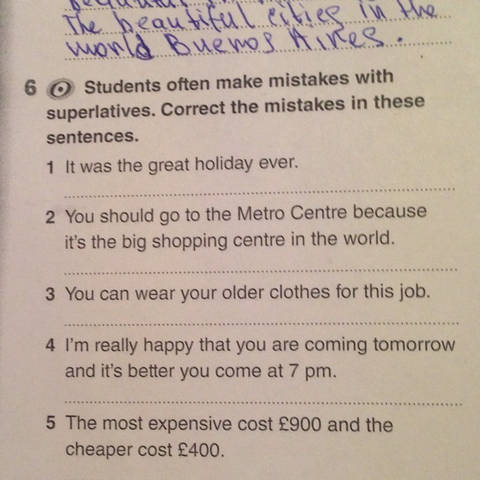 The beautiful cities in the
world Buenos Aires.
6 Students often make mistakes with
superlatives. Correct the mistakes in these
sentences.
1 It was the great holiday ever.
2 You should go to the Metro Centre because
it's the big shopping centre in the world.
3 You can wear your older clothes for this job.
4 I'm really happy that you are coming tomorrow
and it's better you come at 7 pm.
5 The most expensive cost £900 and the
cheaper cost £400.